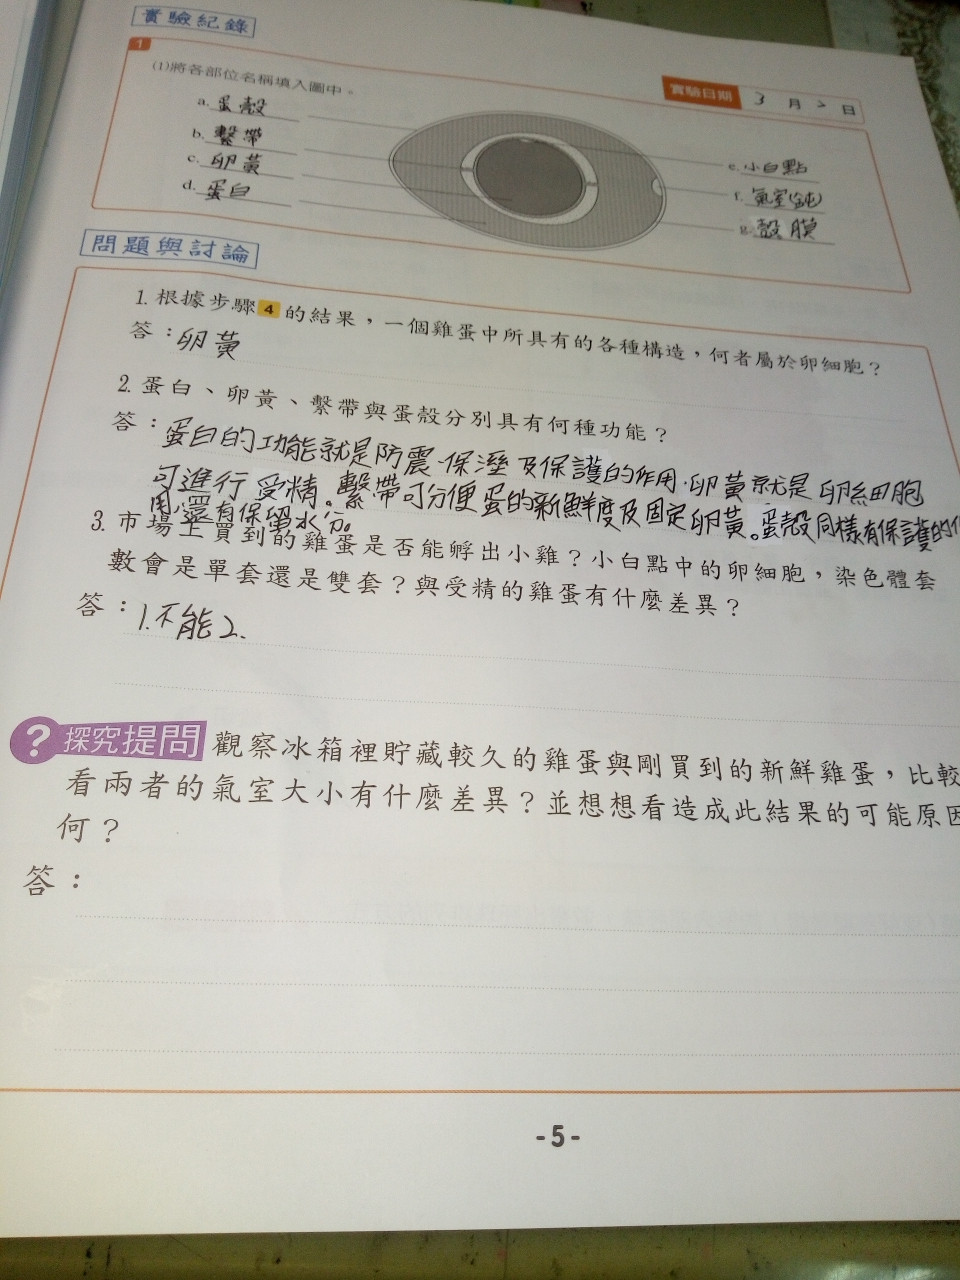 實驗紀錄
1
(1)將各部位名稱填入圖中。
實驗日期 3 月 2 日
a. 蛋殼
b. 繫帶
c. 卵黃
d. 蛋白
e. 小白點
f. 氣室(鈍)
g. 殼膜
問題與討論
1. 根據步驟 4 的結果，一個雞蛋中所具有的各種構造，何者屬於卵細胞？
答：卵黃
2. 蛋白、卵黃、繫帶與蛋殼分別具有何種功能？
答：蛋白的功能就是防震、保溼及保護的作用，卵黃就是卵細胞
可進行受精。繫帶可分便蛋的新鮮度及固定卵黃。蛋殼同樣有保護的作
用，還有保留水分。
3. 市場上買到的雞蛋是否能孵出小雞？小白點中的卵細胞，染色體套
數會是單套還是雙套？與受精的雞蛋有什麼差異？
答：1.不能2.
? 探究提問 觀察冰箱裡貯藏較久的雞蛋與剛買到的新鮮雞蛋，比較
看兩者的氣室大小有什麼差異？並想想看造成此結果的可能原因
何？
答：
-5-